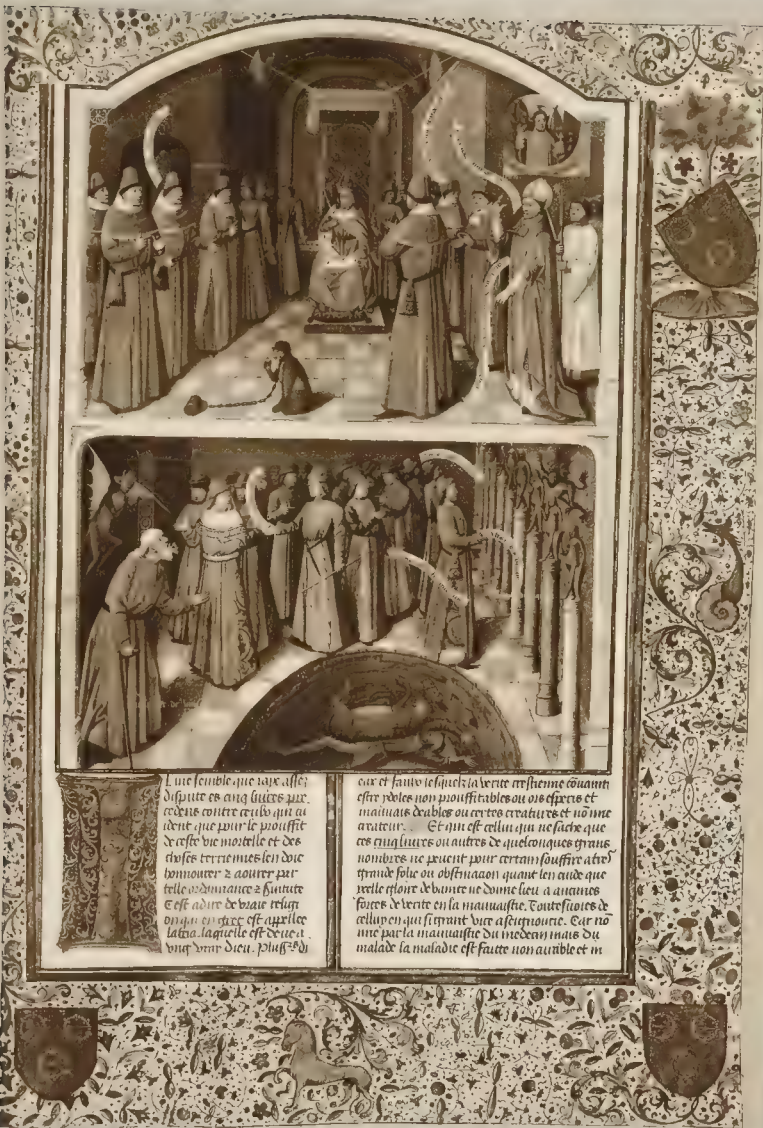 Il me semble que iaix assez
dispute es cinq livres pre
cedens contre ceulx qui cu
ident que pour le prouffit
de ceste vie mortelle et des
choses terriennes len doie
honnourer & aourer par
telle ordonnance & servitute
Cest adire de vraie religi
on qui en grec est appellee
latria. laquelle est deue a
ung vray dieu. pluss's di
eux et faulx lesquelz la verite crestienne cõvainti
estre ydoles non prouffitables ou ors esperis et
mauuais deables ou certes creatures et nõ mie
createur. Et qui est cellui qui ne sache que
ces cinq livres ou autres de quelconques grans
nombres ne peuent pour certain souffire a tres
grande folie ou obstinacion quant len cuide que
icelle gloire de vanite ne donne lieu a aucunes
forces de verite en la mauuaistie. Toutesuoies de
celluy en qui si grant vice a seignourie. Car nõ
mie par la mauuaistie du medecin mais du
malade la maladie est faitte non curable et in